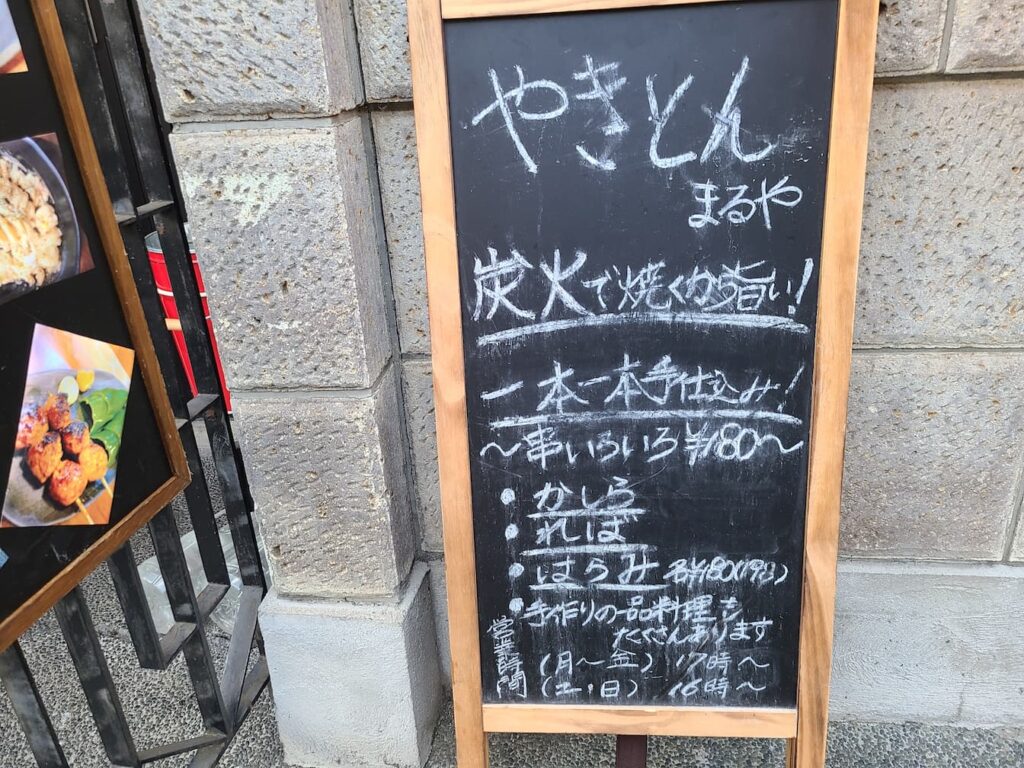 やきとん
まるや
炭火で焼くから旨い!
一本一本手仕込み!
〜串いろいろ¥180〜
・かしら
・れば
・はらみ 各¥180(198)
・手作りの一品料理も
たくさんあります
営業時間
(月〜金) 17時〜
(土、日) 16時〜